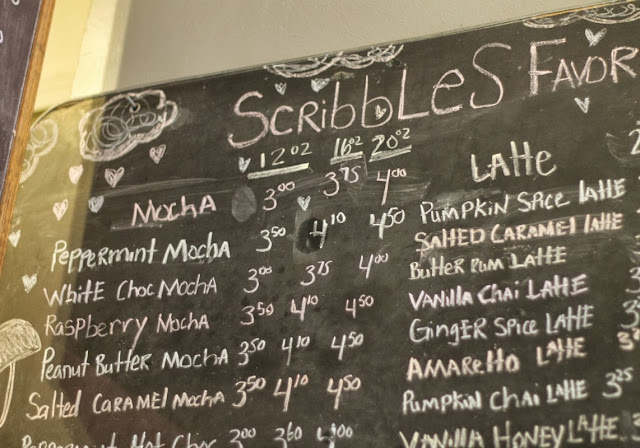 Scribbles Favor
12oz 16oz 20oz
Mocha 3.00 3.75 4.00
Peppermint Mocha 3.50 4.10 4.50
White Choc Mocha 3.00 3.75 4.00
Raspberry Mocha 3.50 4.10 4.50
Peanut Butter Mocha 3.50 4.10 4.50
Salted Caramel Mocha 3.50 4.10 4.50
Peppermint Hot Choc 3.00 3.60 4.00
Latte
Pumpkin Spice Latte
Salted Caramel Latte
Butter Rum Latte
Vanilla Chai Latte
Ginger Spice Latte
Amaretto Latte
Pumpkin Chai Latte 3.25
Vanilla Honey Latte